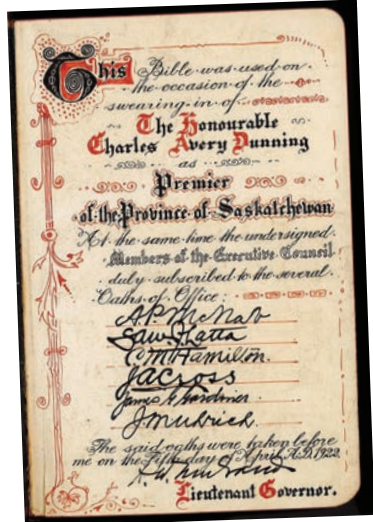 This Bible was used on
the occasion of the
swearing in of
The Honourable
Charles Avery Dunning
as
Premier
of the Province of Saskatchewan
At the same time the undersigned
Members of the Executive Council
duly subscribed to the several
Oaths of Office:
A.P. McNab
Latta
C.M. Hamilton.
J A Cross
James G. Gardiner.
J.M. Uhrich.
The said oaths were taken before
me on the fifth day of April A.D. 1922
Lieutenant Governor.